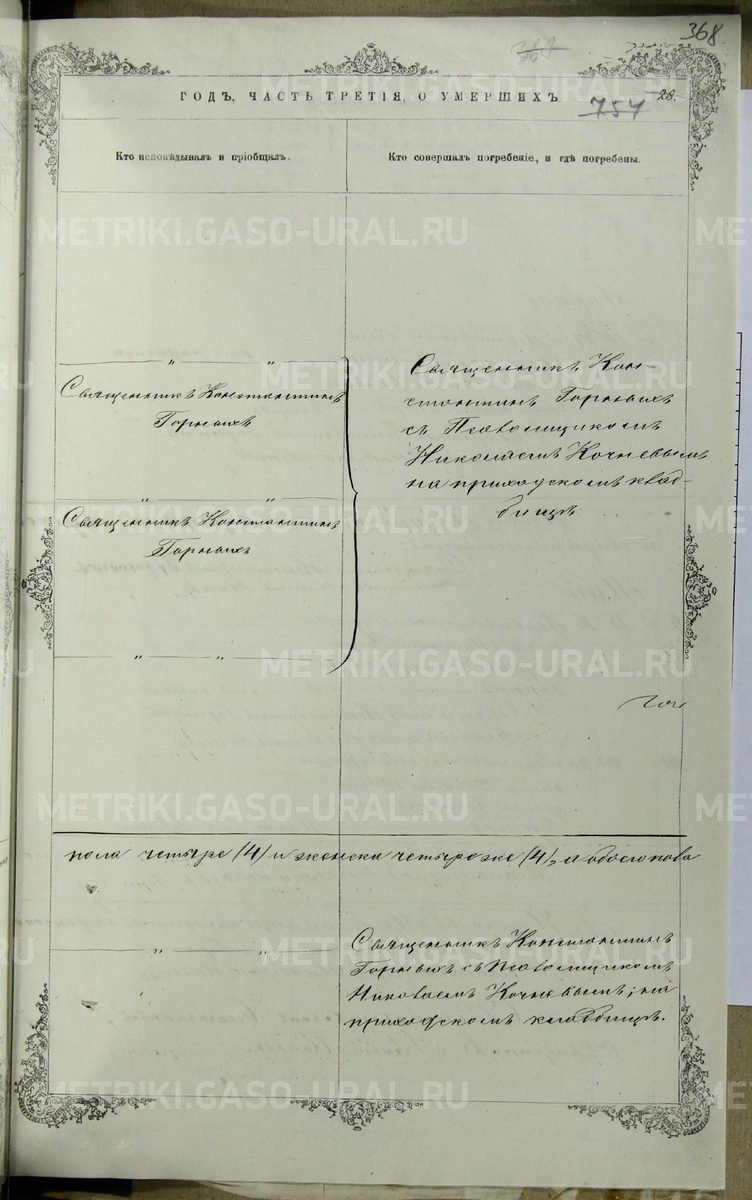 368
369
ГОДЪ, ЧАСТЬ ТРЕТІЯ, О УМЕРШИХЪ
754
28.
Кто исповѣдывалъ и пріобщалъ.
Кто совершалъ погребеніе, и гдѣ погребены.
METRIKI.GASO-URAL.RU
Священникъ Константинъ
Горныхъ
Священникъ Константинъ
Горныхъ
Священникъ Кон-
стантинъ Горныхъ
съ Псаломщикомъ
Николаемъ Кочневымъ
на приходскомъ клад-
бищѣ
пола четыре (4) и женска четыре же (4), а обоего пола
Священникъ Константинъ
Горныхъ съ Псаломщикомъ
Николаемъ Кочневымъ; на
приходскомъ кладбищѣ.